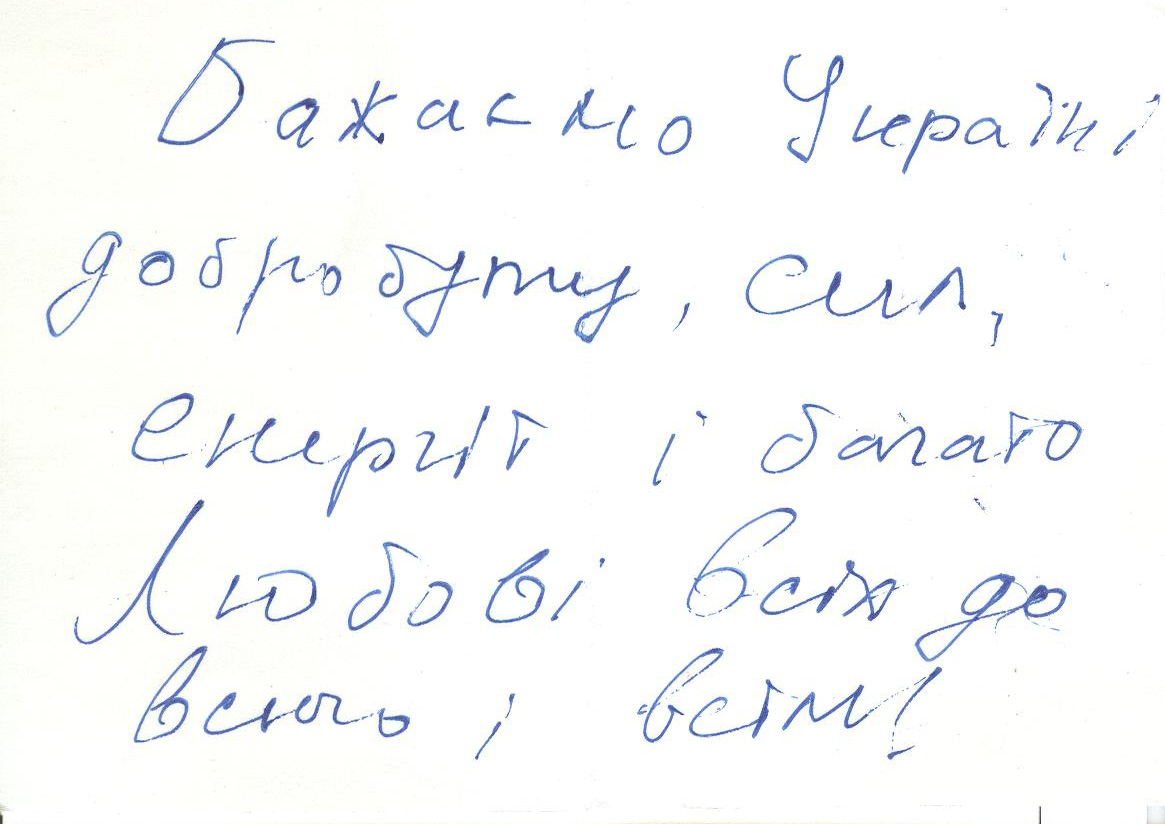 Бажаємо Україні
добробуту, сил,
енергії і багато
Любові всіх до
всього і всім!